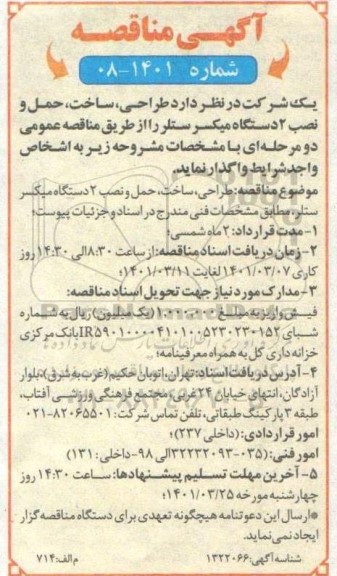 آگهی مناقصه
شماره ۱۴۰۱-۰۸
یک شرکت در نظر دارد طراحی، ساخت، حمل و
نصب ۲ دستگاه میکسر ستلر را از طریق مناقصه عمومی
دو مرحله‌ای با مشخصات مشروحه زیر به اشخاص
واجد شرایط واگذار نماید.
موضوع مناقصه: طراحی، ساخت، حمل و نصب ۲ دستگاه میکسر
ستلر مطابق مشخصات فنی مندرج در اسناد و جزئیات پیوست؛
۱- مدت قرارداد: ۲ ماه شمسی؛
۲- زمان دریافت اسناد مناقصه: از ساعت ۸:۳۰ الی ۱۴:۳۰ روز
کاری ۱۴۰۱/۰۳/۰۷ لغایت ۱۴۰۱/۰۳/۱۱؛
۳- مدارک مورد نیاز جهت تحویل اسناد مناقصه:
فیش واریز به مبلغ ۱،۰۰۰،۰۰۰ (یک میلیون) ریال به شماره
شبای IR۵۹۰۱۰۰۰۰۴۱۰۱۰۰۵۲۳۰۲۳۰۱۵۲ بانک مرکزی
خزانه داری کل به همراه معرفینامه؛
۴- آدرس دریافت اسناد: تهران، اتوبان حکیم (غرب به شرق)، بلوار
آزادگان، انتهای خیابان ۲۴ غربی، مجتمع فرهنگی ورزشی آفتاب،
طبقه ۳ پارکینگ طبقاتی، تلفن تماس شرکت: ۸۲۰۶۵۵۰۱-۰۲۱
امور قراردادی: (داخلی ۲۳۷)؛
امور فنی: (۰۳۵-۳۲۲۳۲۰۹۳ الی ۹۸-داخلی: ۱۳۱)
۵- آخرین مهلت تسلیم پیشنهادها: ساعت ۱۴:۳۰ روز
چهارشنبه مورخه ۱۴۰۱/۰۳/۲۵؛
*ارسال این دعوتنامه هیچگونه تعهدی برای دستگاه مناقصه گزار
ایجاد نمی‌نماید.
شناسه آگهی: ۱۳۲۲۰۶۶ م الف: ۷۱۴